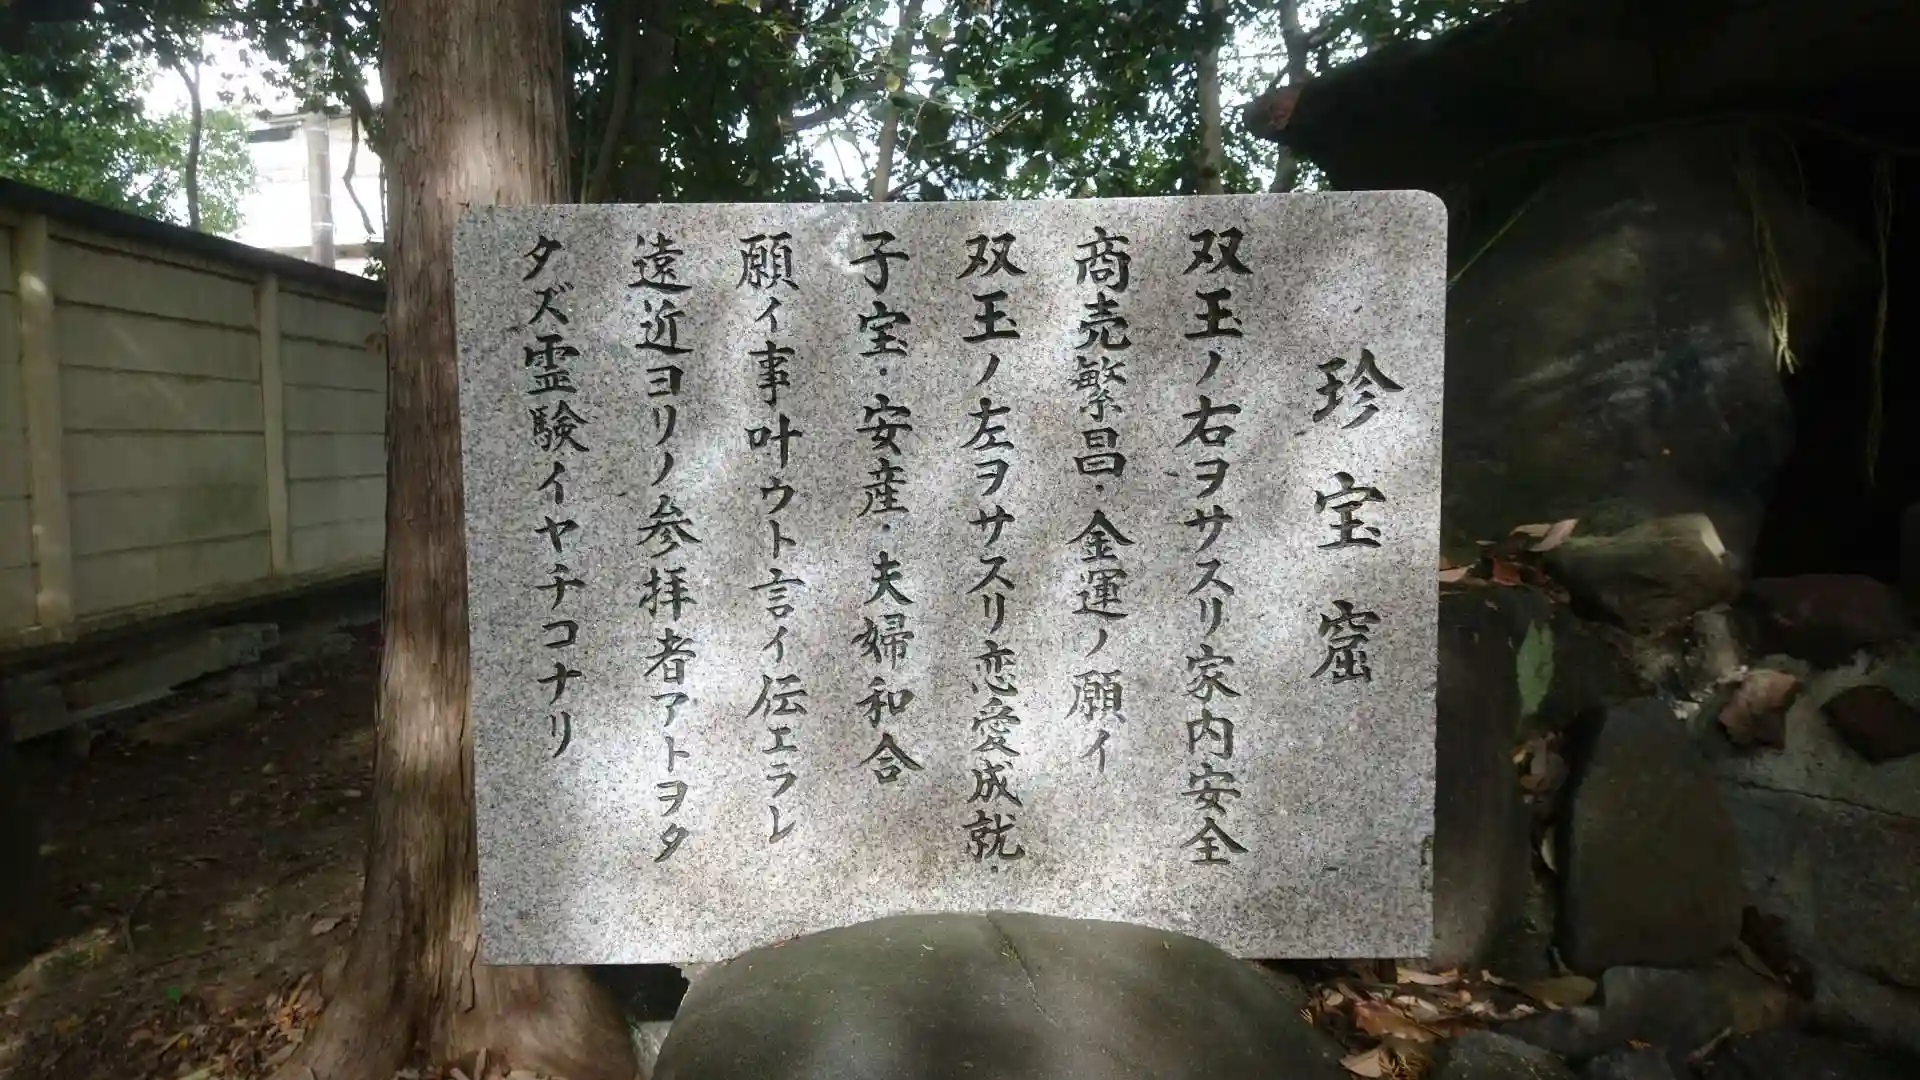 珍宝窟
双王ノ右ヲサスリ家内安全
商売繁昌・金運ノ願イ
双王ノ左ヲサスリ恋愛成就・
子宝・安産・夫婦和合
願イ事叶ウト言イ伝エラレ
遠近ヨリノ参拝者アトヲタ
タズ霊験イヤチコナリ